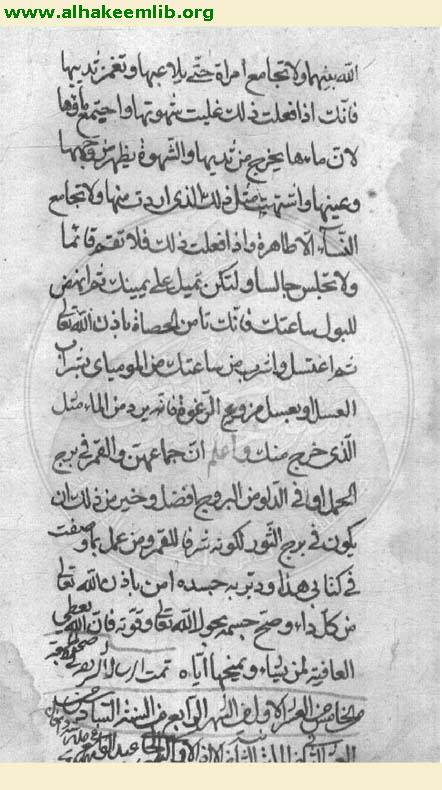 www.alhakeemlib.org
الله بينهما ولا تجامع امراة حتى تلاعبها وتغمز ثدييها
فانك اذا فعلت ذلك غلبت شهوتها واجتمع ماؤها
لان ماءها يخرج من ثدييها والشهوة يظهر من وجهها
وعينيها واشتهت مثل ذلك الذى اردت منها ولا تجامع
النسآء الا طاهرة واذا فعلت ذلك فلا تقم قائما
ولا تجلس جالسا ولكن تميل على يمينك ثم انهض
للبول ساعتك فانك تامن الحصاة باذن الله تعالى
ثم اغتسل واشرب من ساعتك من الموميای بشراب
العسل او بعسل منزوع الرغوة فانه يرد من الماء مثل
الذى خرج منك واعلم ان جماعهن والقمر فى برج
الحمل او فى الدلو من البروج افضل وخير من ذلك ان
يكون فى برج الثور لكونه شرفا للقمر ومن عمل بما وصفت
فى كتابى هذا ودبر به جسده امن باذن الله تعالى
من كل داء وصح جسمه بحول الله تعالى وقوته فان الله يعطى
العافية لمن يشاء ويمنحها اياه تمت الرسالة